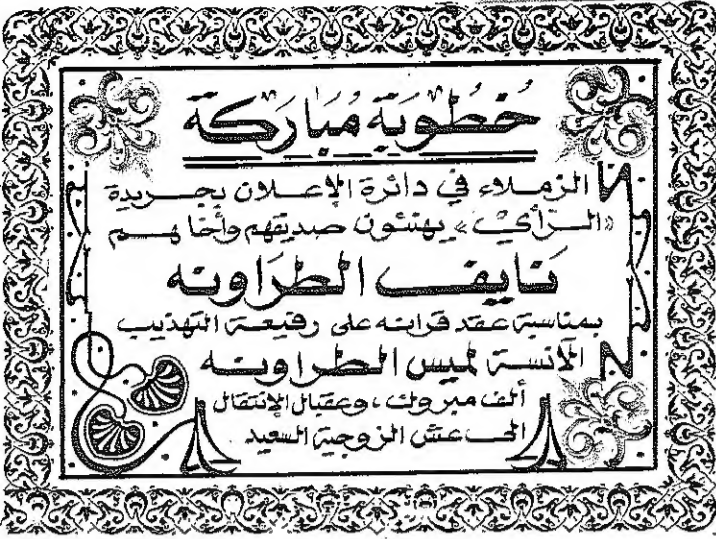 خُطُوبَة مُبَارَكَة
الزملاء في دائرة الإعلان بجريدة
«الرأي» يهنئون صديقهم وأخاهم
نايف الطراونه
بمناسبة عقد قرانه على رفيعة التهذيب
الآنسة لميس الطراونه
ألف مبروك، وعقبال الإنتقال
الى عش الزوجية السعيد